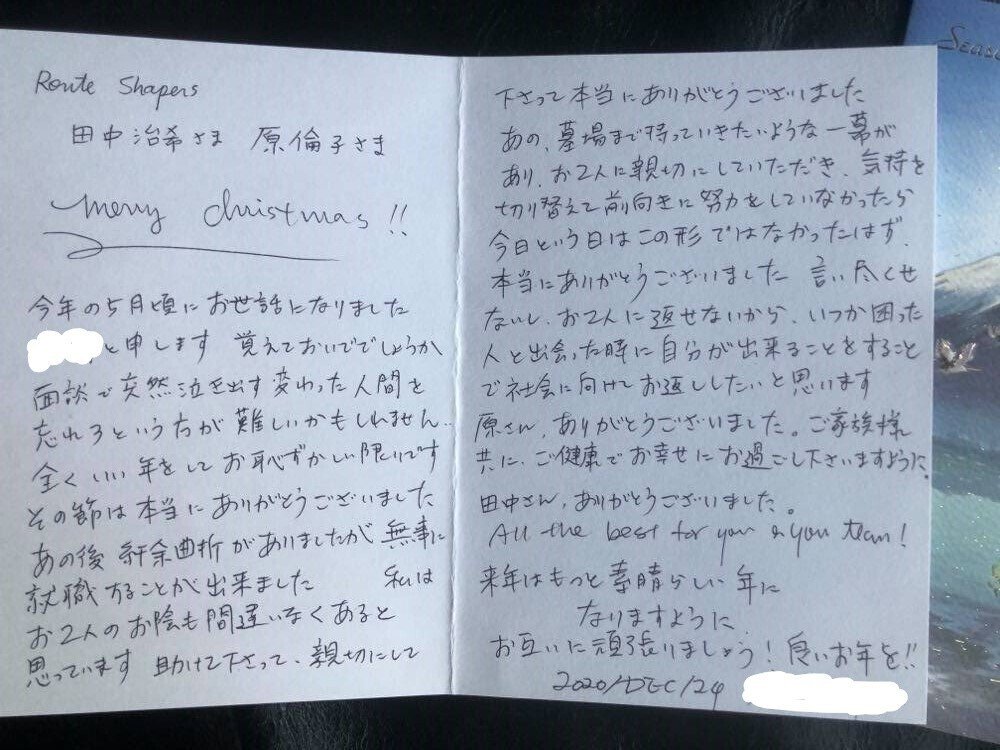 Route Shapers
田中治希さま 原倫子さま
Merry Christmas !!
今年の5月頃にお世話になりました
と申します 覚えておいででしょうか
面談で突然泣き出す変わった人間を
忘れろという方が難しいかもしれません..
全くいい年をしてお恥ずかしい限りです
その節は本当にありがとうございました
あの後 紆余曲折がありましたが 無事に
就職することが出来ました 私は
お2人のお陰も間違いなくあると
思っています 助けて下さって、親切にして
下さって本当にありがとうございました
あの、墓場まで持っていきたいような一幕が
あり、お2人に親切にしていただき、気持を
切り替えて前向きに努力をしていなかったら
今日という日はこの形ではなかったはず、
本当にありがとうございました 言い尽くせ
ないし、お2人に返せないから、いつか困った
人と出会った時に自分が出来ることをすること
で社会に向けてお返ししたいと思います
原さん、ありがとうございました。ご家族様
共に、ご健康でお幸せにお過ごし下さいますように、
田中さん、ありがとうございました。
All the best for you & you team!
来年はもっと素晴らしい年に
なりますように、
お互いに頑張りましょう! 良いお年を!!
2020/DEC/24